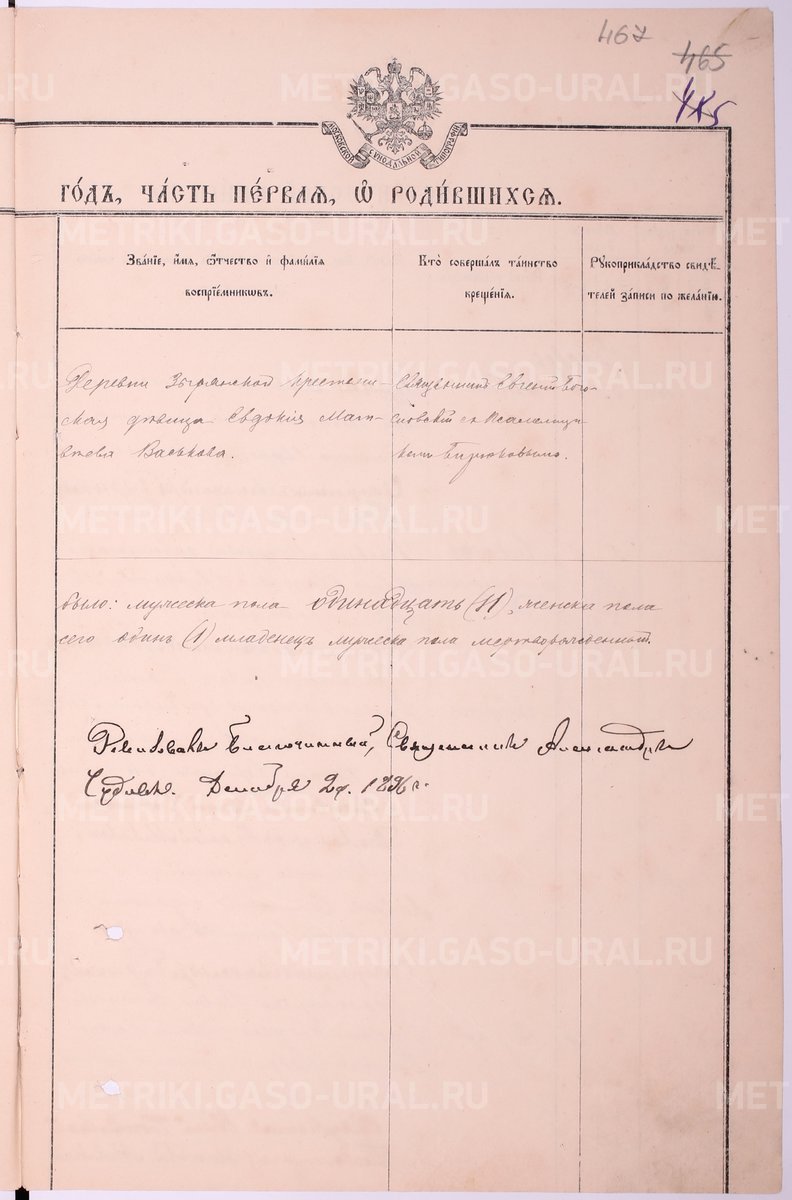 467
465
415
МОСКОВСКОЙ СѴНОДАЛЬНОЙ ТИПОГРАФІИ
ГО́ДЪ, ЧА́СТЬ ПЕ́РВАѦ, Ѡ҆ РОДИ́ВШИХСѦ.
Зва́нїе, и҆́мѧ, ѻ҆́тчество и҆ фами́лїѧ
воспрїе́мникѡвъ.
Кто̀ соверша́лъ та́инство
креще́нїѧ.
Рꙋкоприкла́дство свидѣ́-
телей за́писи по жела́нїю.
Деревни Зырянской крестьян-
ская дѣвица Евдокія Мат-
вѣева Васькова.
Священникъ Евгеній Бого-
словскій съ Псаломщи-
комъ Бирюковымъ.
было: мужеска пола одинадцать (11), женска пола
сего одинъ (1) младенецъ мужеска пола мертворожденный.
Ревизовалъ Благочинный, Священникъ Александръ
Декабря 1896 г.
METRIKI.GASO-URAL.RU